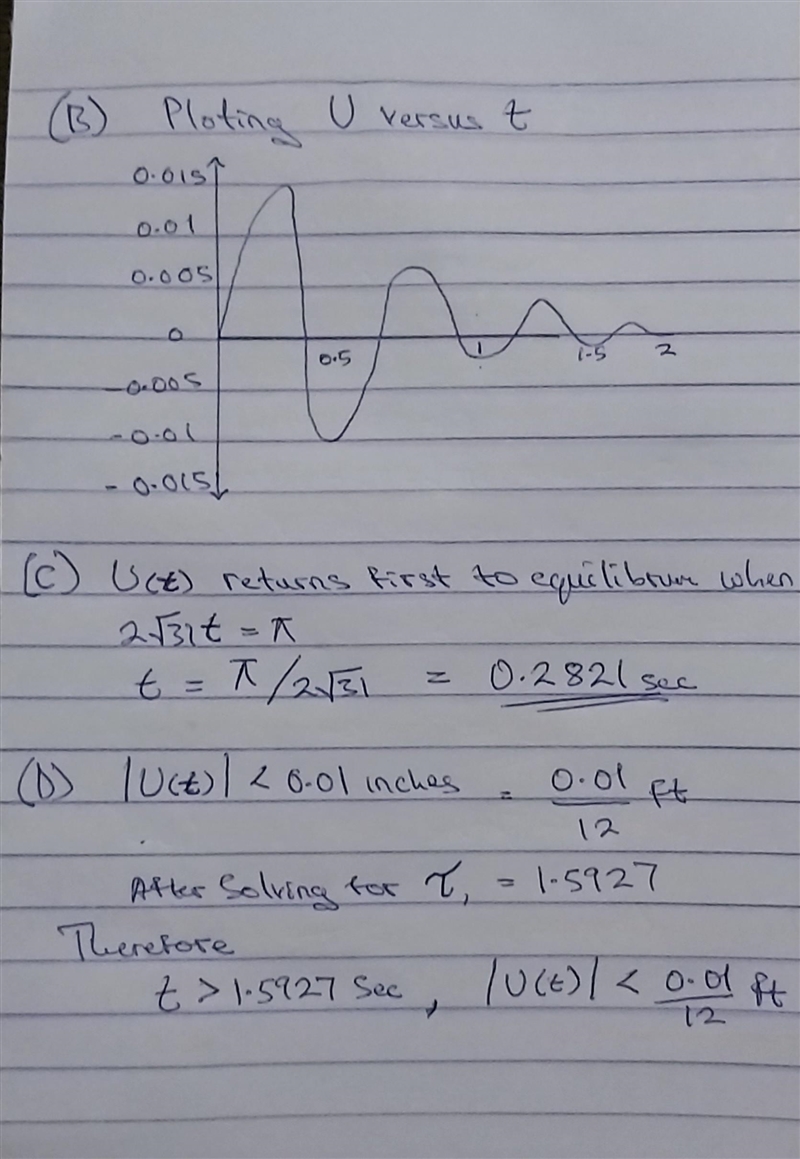 (B) Ploting U versus t
0.015
0.01
0.005
0
0.5
1
1.5
2
-0.005
-0.01
-0.015
(C) U(t) returns first to equilibrum when
2√31 t = π
t = π/2√31 = 0.2821 sec
(D) |U(t)| < 0.01 inches = 0.01/12 ft
After Solving for τ, = 1.5927
Therefore
t > 1.5927 Sec, |U(t)| < 0.01/12 ft